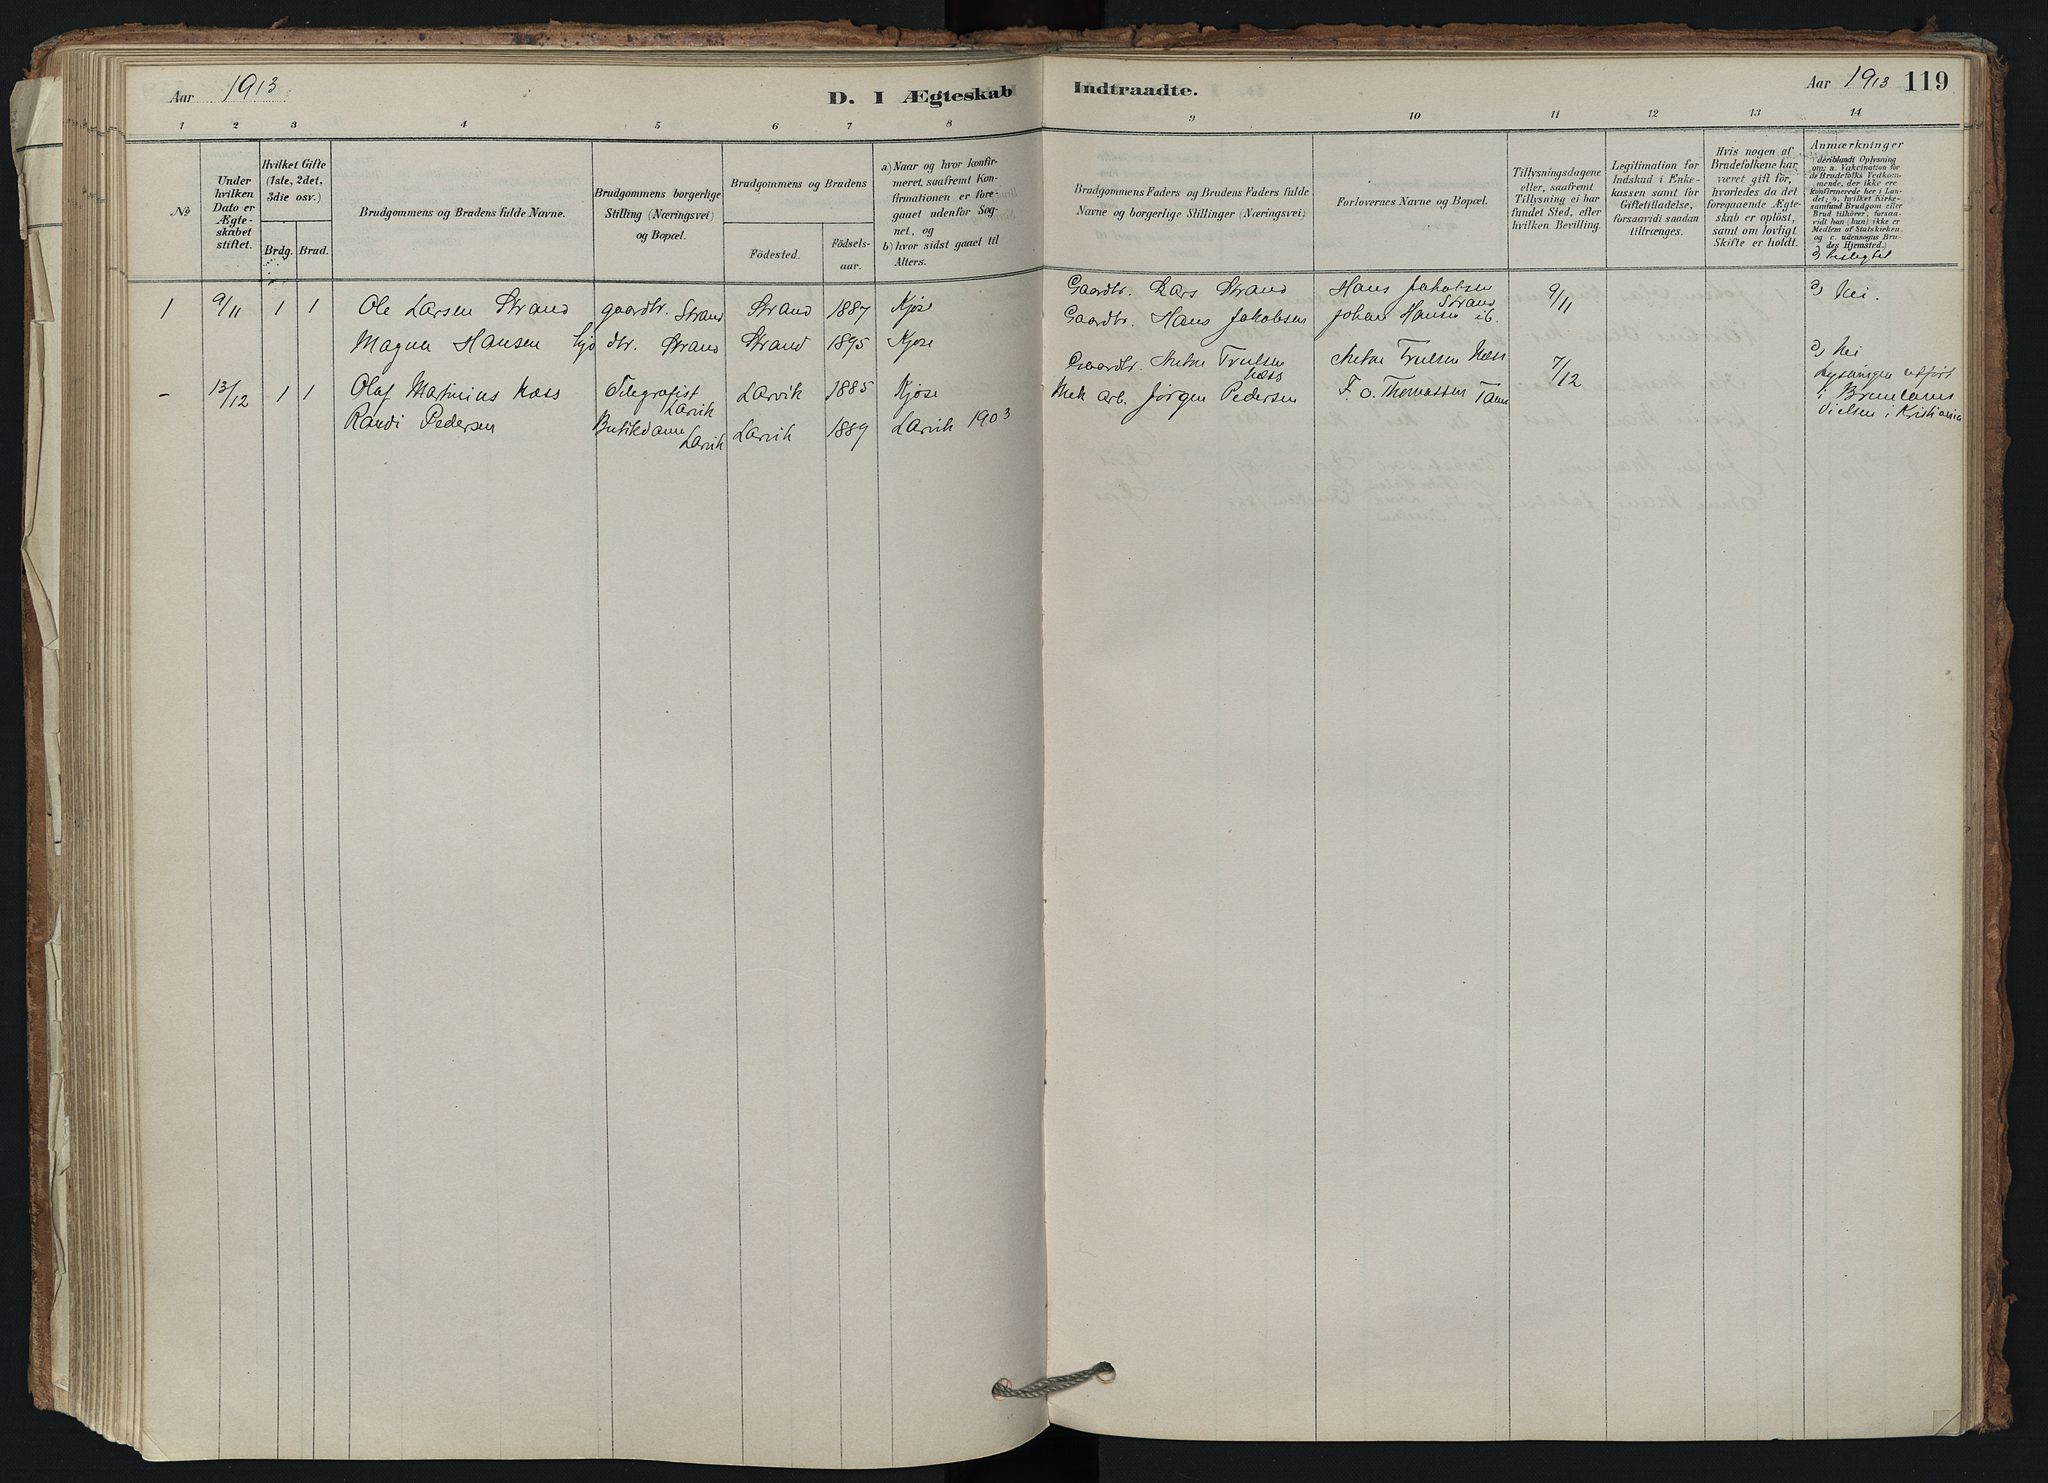 Aar 1913.
D. I Ægteskab
Indtraadte.
Aar 1913
119
1 2 3 4 5 6 7 8
9 10 11 12 13 14
No
Under hvilken Dato er Ægte-skabet stiftet.
Hvilket Gifte (1ste, 2det, 3die osv.)
Brdg. Brud.
Brudgommens og Brudens fulde Navne.
Brudgommens borgerlige Stilling (Næringsvei) og Bopæl.
Brudgommens og Brudens
Födested.
Födsels-aar.
a) Naar og hvor konfir-meret, saafremt Kon-firmationen er fore-gaaet udenfor Sog-net, og
b) hvor sidst gaaet til Alters.
Brudgommens Faders og Brudens Faders fulde Navne og borgerlige Stillinger (Næringsvei)
Forlovernes Navne og Bopæl.
Tillysningsdagene eller, saafremt Tillysning ei har fundet Sted, efter hvilken Bevilling.
Legitimation for Indskud i Enke-kassen samt for Giftetilladelse, forsaavidt saadan tiltrænges.
Hvis nogen af Brudefolkene har været gift før, hvorledes da det foregaaende Ægte-skab er oplöst, samt om lovligt Skifte er holdt.
Anmærkninger
(deriblandt Oplysning om: a. Vakcination for de Brudefolks Vedkom-mende, der ikke ere konfirmerede her i Lan-det; b. hvilket Kirke-samfund Brudgom eller Brud tilhörer, forsaa-vidt han (hun) ikke er Medlem af Statskirken, og c. udensogns Bru-des Hjemsted.)
1 9/11 1 1 Ole Larsen Strand gaardbr. Strand Strand 1887 Kjøse Gaardbr. Lars Strand Hans Jakobsen Strand 9/11 Nei.
Magna Hansen dtr. Strand Strand 1895 Kjøse Gaardbr. Hans Jakobsen Johan Hansen ib.
- 13/12 1 1 Olaf Martinius Næss Telegrafist Larvik Larvik 1885 Kjøse Gaardbr. Anton Trulsen Næss Anton Trulsen Næss 7/12 Nei
Randi Pedersen Butikdame Larvik Larvik 1889 Larvik 1903 Mek arb. Jørgen Pedersen F. O. Thomassen
Lysningen utført
i Brunlanes
Vielsen i Kristiania